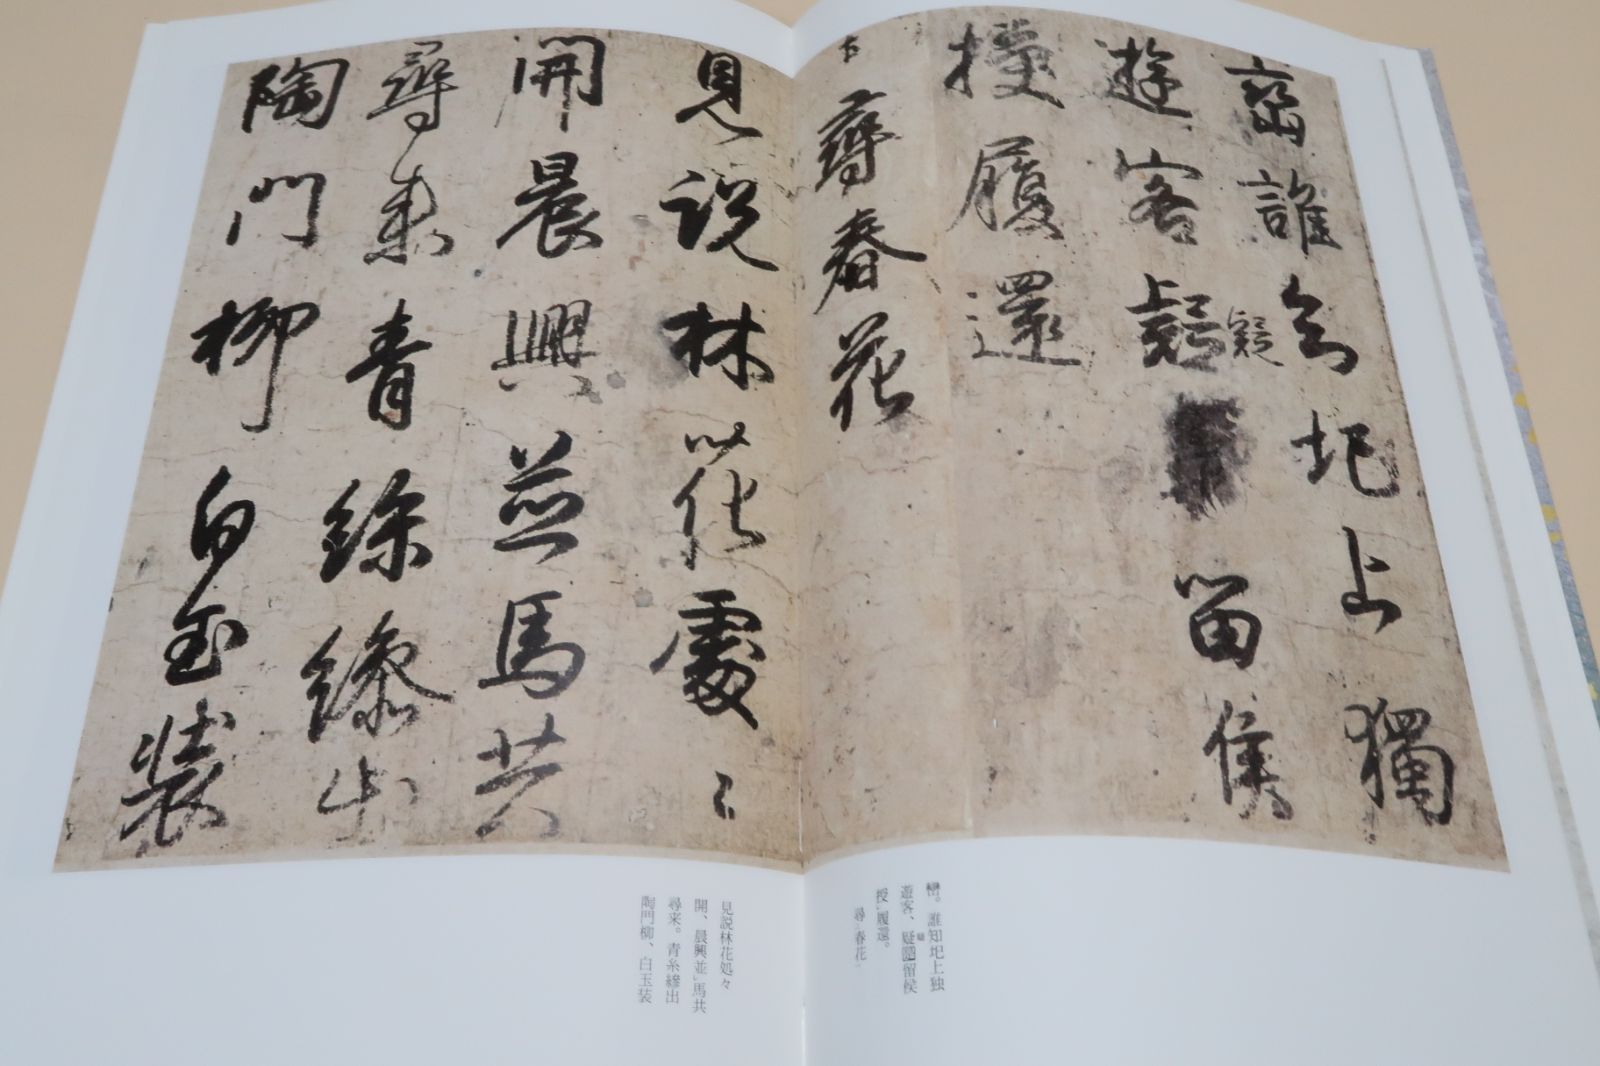 巒誰知圯上獨
遊客疑疑留侯
授履還
尋春花
見說林花處〻
開晨興並馬共
尋来青絲縿出
陶門柳白玉装
巒。誰知圯上独
遊客、疑随留侯
授履還。
尋春花
見説林花処々
開、晨興並馬共
尋来。青糸縿出
陶門柳、白玉装